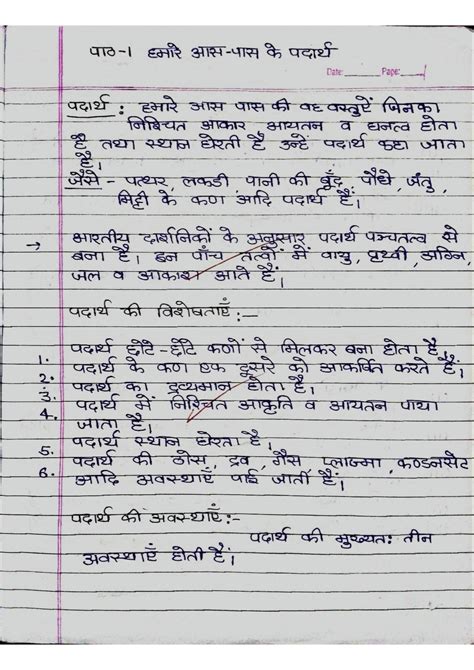 पाठ-1 हमारे आस-पास के पदार्थ
Date:______ Page:______
पदार्थ : हमारे आस पास की वह वस्तुऐं जिनका
निश्चित आकार, आयतन व घनत्व होता
है तथा स्थान घेरती है उन्हें पदार्थ कहा जाता
है।
जैसे - पत्थर, लकडी, पानी की बूँद, पौधे, जंतु,
मिट्टी के कण आदि पदार्थ हैं।
→ भारतीय दार्शनिकों के अनुसार पदार्थ पञ्चतत्व से
बना है। इन पाँच तत्वों में वायु, पृथ्वी, अग्नि,
जल व आकाश आते हैं।
पदार्थ की विशेषताएँ :-
1. पदार्थ छोटे-छोटे कणों से मिलकर बना होता है।
2. पदार्थ के कण एक दूसरे को आकर्षित करते हैं।
3. पदार्थ का द्रव्यमान होता है।
4. पदार्थ में निश्चित आकृति व आयतन पाया
जाता है।
5. पदार्थ स्थान घेरता है।
6. पदार्थ की ठोस, द्रव, गैस, प्लाज्मा, कण्डनसेट
आदि अवस्थाएँ पाई जाती हैं।
पदार्थ की अवस्थाएँ :-
पदार्थ की मुख्यत: तीन
अवस्थाएँ होती हैं।